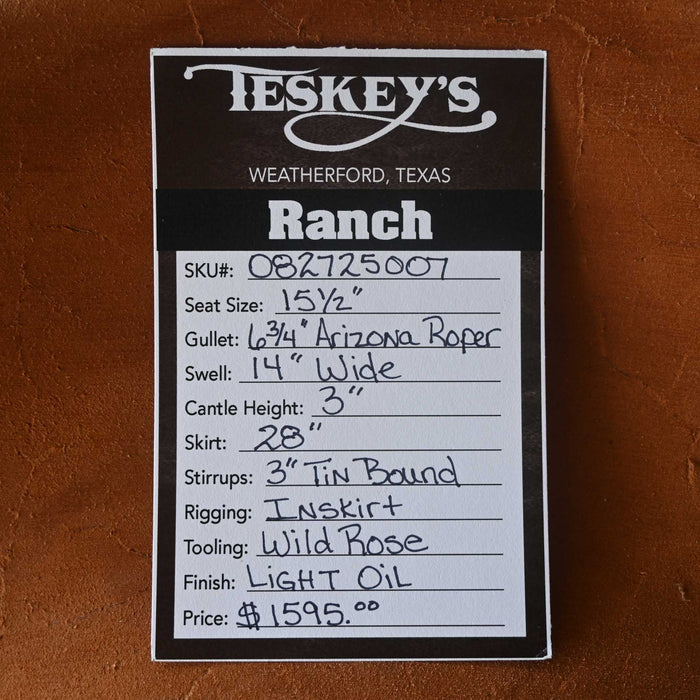 TESKEY'S
WEATHERFORD, TEXAS
Ranch
SKU#: 082725007
Seat Size: 15½"
Gullet: 6¾" Arizona Roper
Swell: 14" Wide
Cantle Height: 3"
Skirt: 28"
Stirrups: 3" Tin Bound
Rigging: Inskirt
Tooling: Wild Rose
Finish: LIGHT OIL
Price: $1595.00